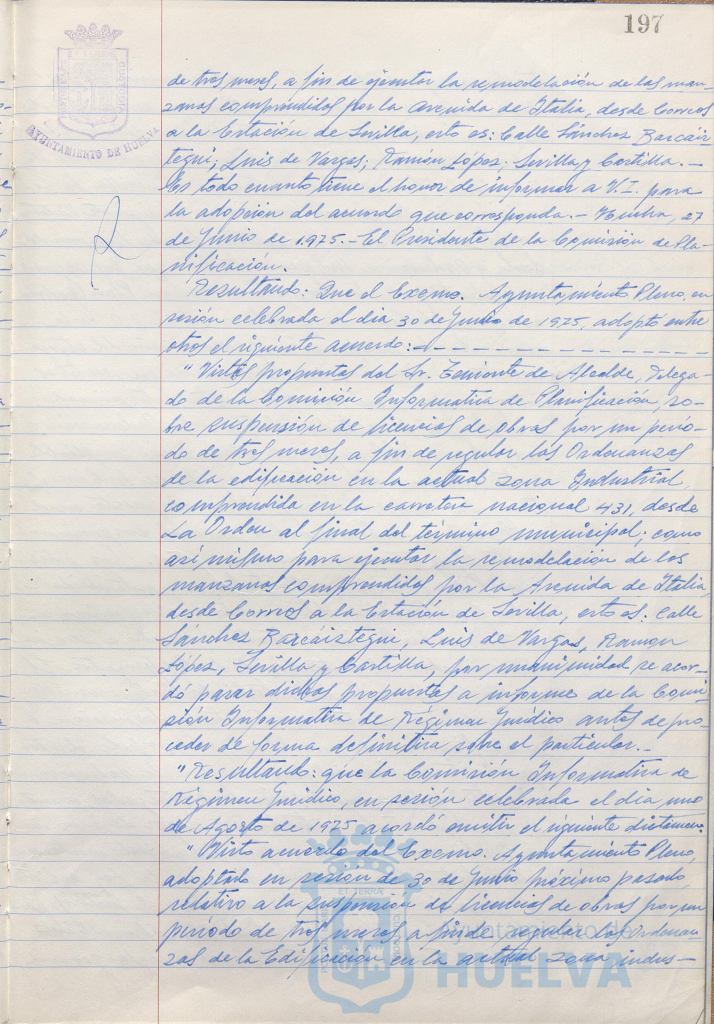 197
AYUNTAMIENTO DE HUELVA
de tres meses, a fin de ejecutar la remodelación de las man-
zanas comprendidas por la Avenida de Italia, desde Correos
a la Estación de Sevilla, esto es: Calle Sánchez Barcáiz
tegui; Luis de Vargas; Ramón López. Sevilla y Castilla.-
Es todo cuanto tiene el honor de informar a V.I. para
la adopción del acuerdo que corresponda.- Huelva, 27
de Junio de 1.975.- El Presidente de la Comisión de Pla-
nificación.
Resultando: Que el Excmo. Ayuntamiento Pleno, en
sesión celebrada el día 30 de Junio de 1975, adoptó entre
otros el siguiente acuerdo:- - - - - - - - - - - - - - -
"Vistas propuestas del Sr. Teniente de Alcalde, Delega-
do de la Comisión Informativa de Planificación, so-
bre suspensión de licencias de obras por un perío-
do de tres meses, a fin de regular las Ordenanzas
de la edificación en la actual zona Industrial,
comprendida en la carretera nacional 431, desde
La Orden al final del término municipal; como
asimismo para ejecutar la remodelación de las
manzanas comprendidas por la Avenida de Italia,
desde Correos a la Estación de Sevilla, esto es: Calle
Sánchez Barcáiztegui, Luis de Vargas, Ramon
López, Sevilla y Castilla, por unanimidad se acor-
dó pasar dichas propuestas a informe de la Comi-
sión Informativa de Régimen Jurídico antes de pro-
ceder de forma definitiva sobre el particular.-
"Resultando: que la Comisión Informativa de
Régimen Jurídico, en sesión celebrada el día uno
de Agosto de 1975 acordó emitir el siguiente dictamen:
"Visto acuerdo del Excmo. Ayuntamiento Pleno,
adoptado en sesión de 30 de Junio próximo pasado,
relativo a la suspensión de licencias de obras por un
período de tres meses a fin de regular las Ordenan-
zas de la Edificación en la actual zona indus-
Ayuntamiento de
HUELVA